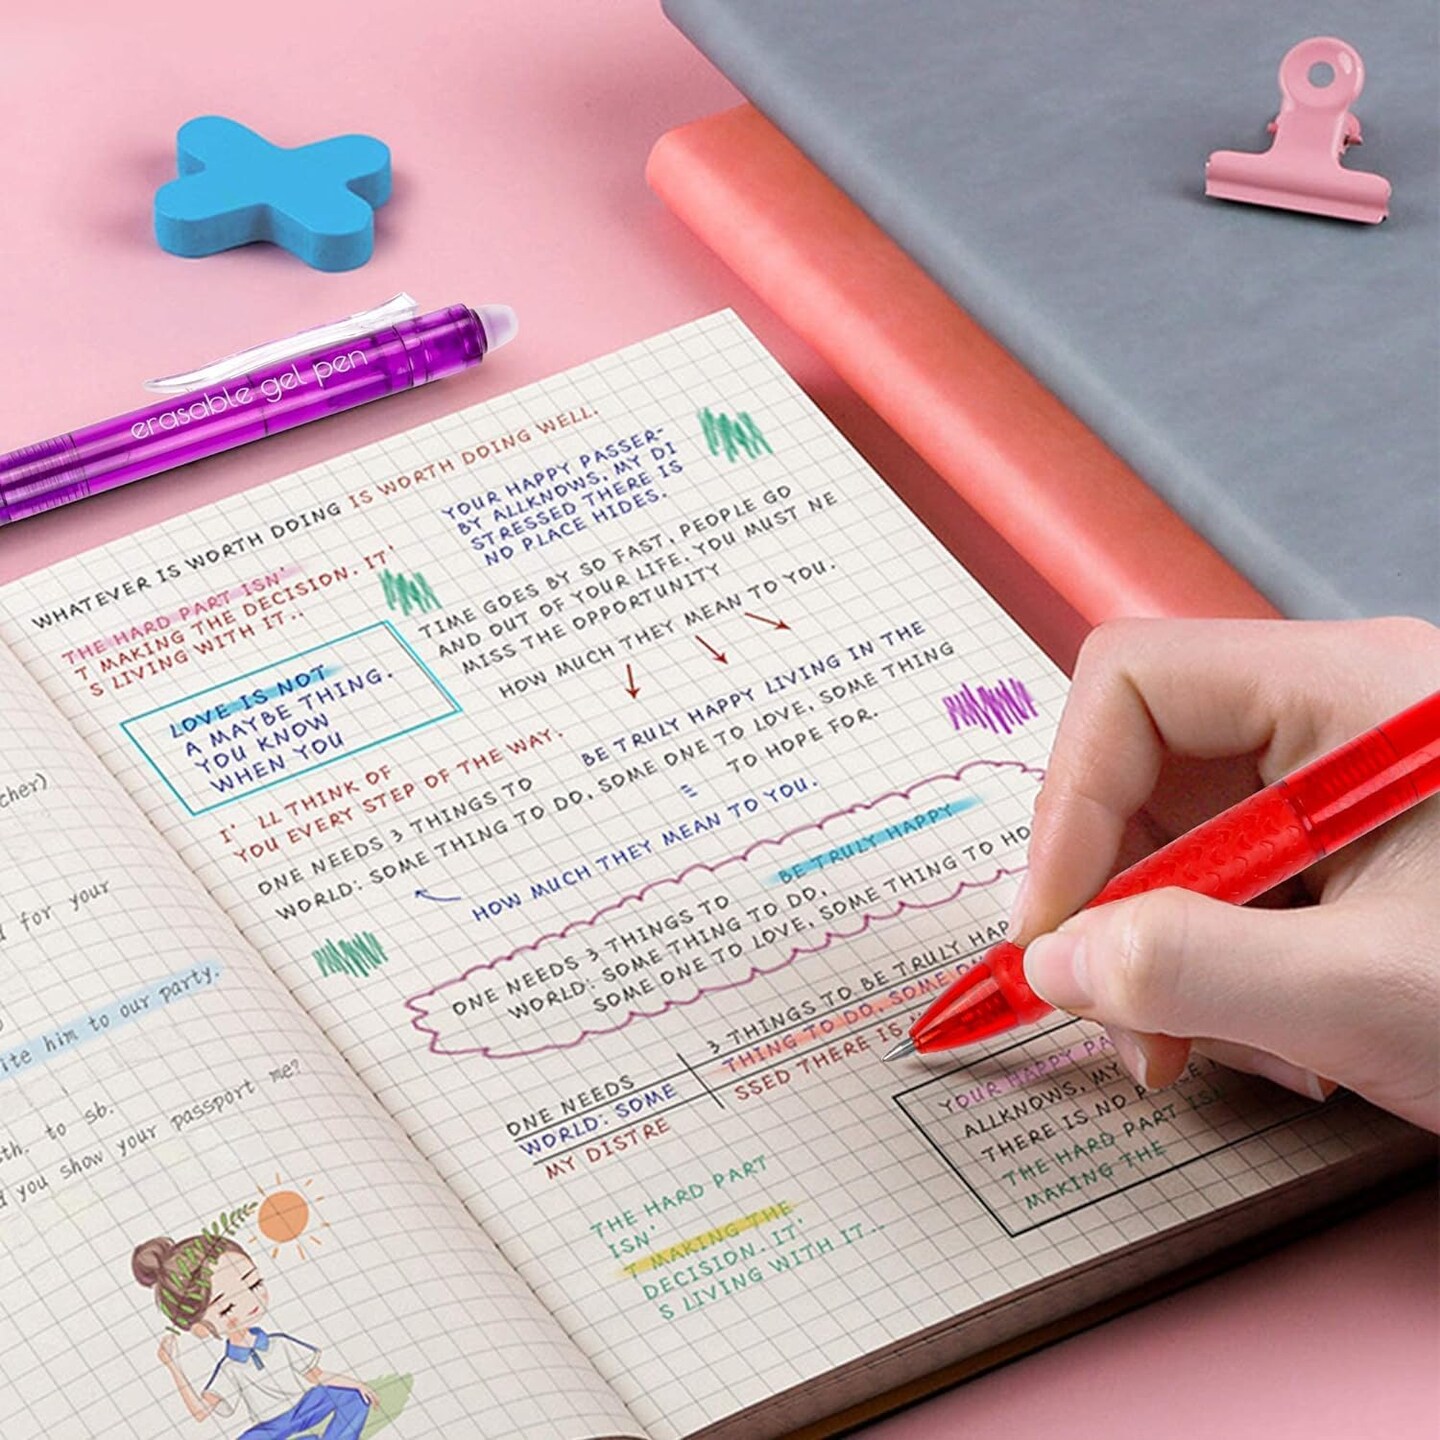 erasable gel pen
WHATEVER IS WORTH DOING IS WORTH DOING WELL.
THE HARD PART ISN'
T MAKING THE DECISION. IT'
S LIVING WITH IT..
YOUR HAPPY PASSER-
BY ALLKNOWS, MY DI
STRESSED THERE IS
NO PLACE HIDES.
TIME GOES BY SO FAST, PEOPLE GO
AND OUT OF YOUR LIFE. YOU MUST NE
MISS THE OPPORTUNITY
HOW MUCH THEY MEAN TO YOU.
LOVE IS NOT
A MAYBE THING.
YOU KNOW
WHEN YOU
I' LL THINK OF
YOU EVERY STEP OF THE WAY.
BE TRULY HAPPY LIVING IN THE
ONE NEEDS 3 THINGS TO
WORLD: SOME THING TO DO, SOME ONE TO LOVE, SOME THING
TO HOPE FOR.
HOW MUCH THEY MEAN TO YOU.
BE TRULY HAPPY
ONE NEEDS 3 THINGS TO
WORLD: SOME THING TO DO,
SOME ONE TO LOVE, SOME THING TO HO
3 THINGS TO BE TRULY HAP
THING TO DO, SOME ON
SSED THERE IS
ONE NEEDS
WORLD: SOME
MY DISTRE
YOUR HAPPY PA
ALLKNOWS, MY
THERE IS NO PLACE
THE HARD PART ISN
MAKING THE
THE HARD PART
ISN'
T MAKING THE
DECISION. IT'
S LIVING WITH IT..
cher)
for your
ite him to our party.
sth. to sb.
d you show your passport me?